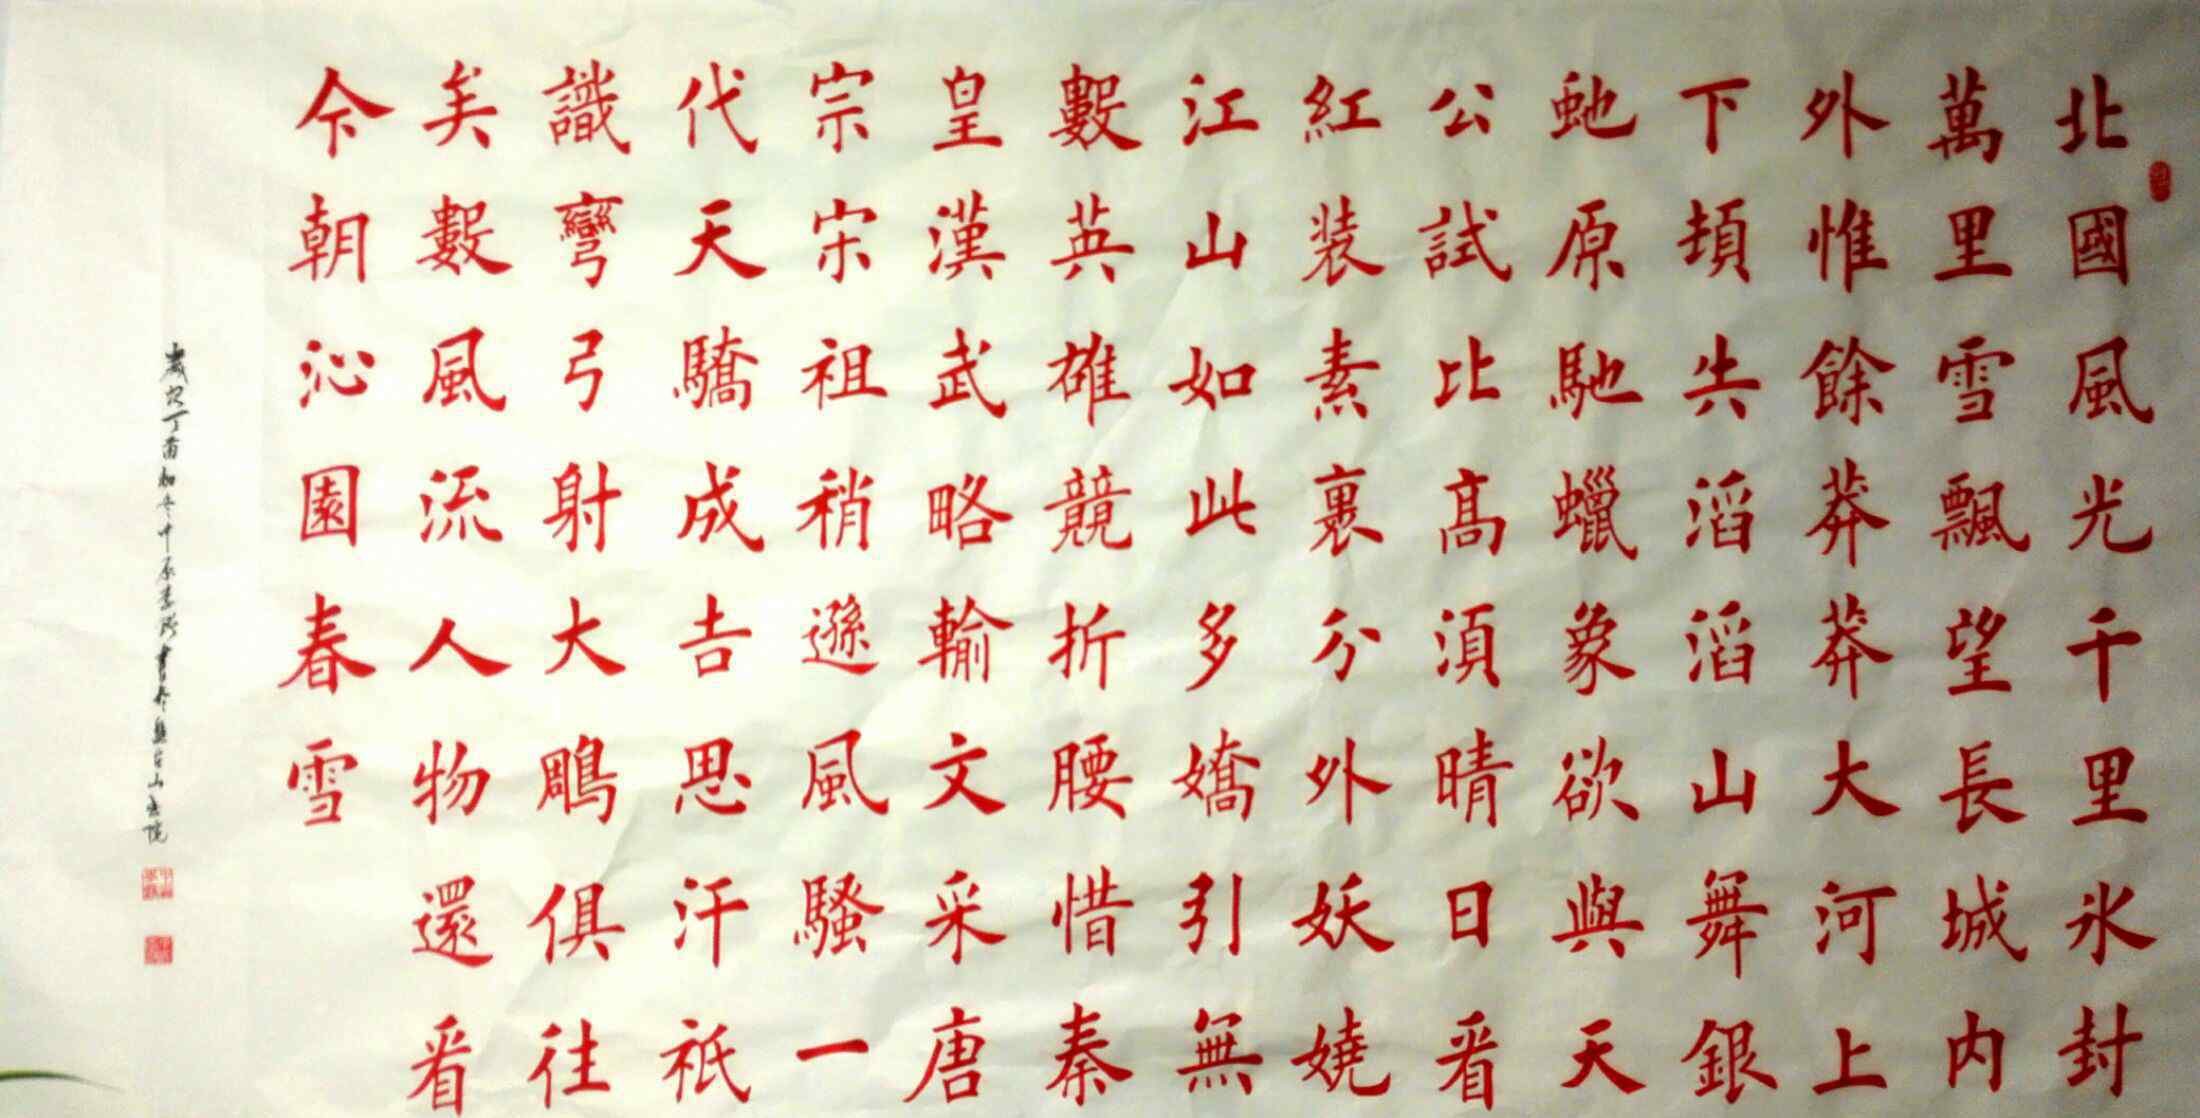 北國風光千里氷封
萬里雪飄望長城内
外惟餘莽莽大河上
下頓失滔滔山舞銀
虵原馳蠟象欲與天
公試比高須晴日看
紅装素裹分外妖嬈
江山如此多嬌引無
數英雄競折腰惜秦
皇漢武略輸文采唐
宗宋祖稍遜風騷一
代天驕成吉思汗祇
識彎弓射大鵰俱往
矣數風流人物還看
今朝沁園春雪
歲次丁酉初冬中原李